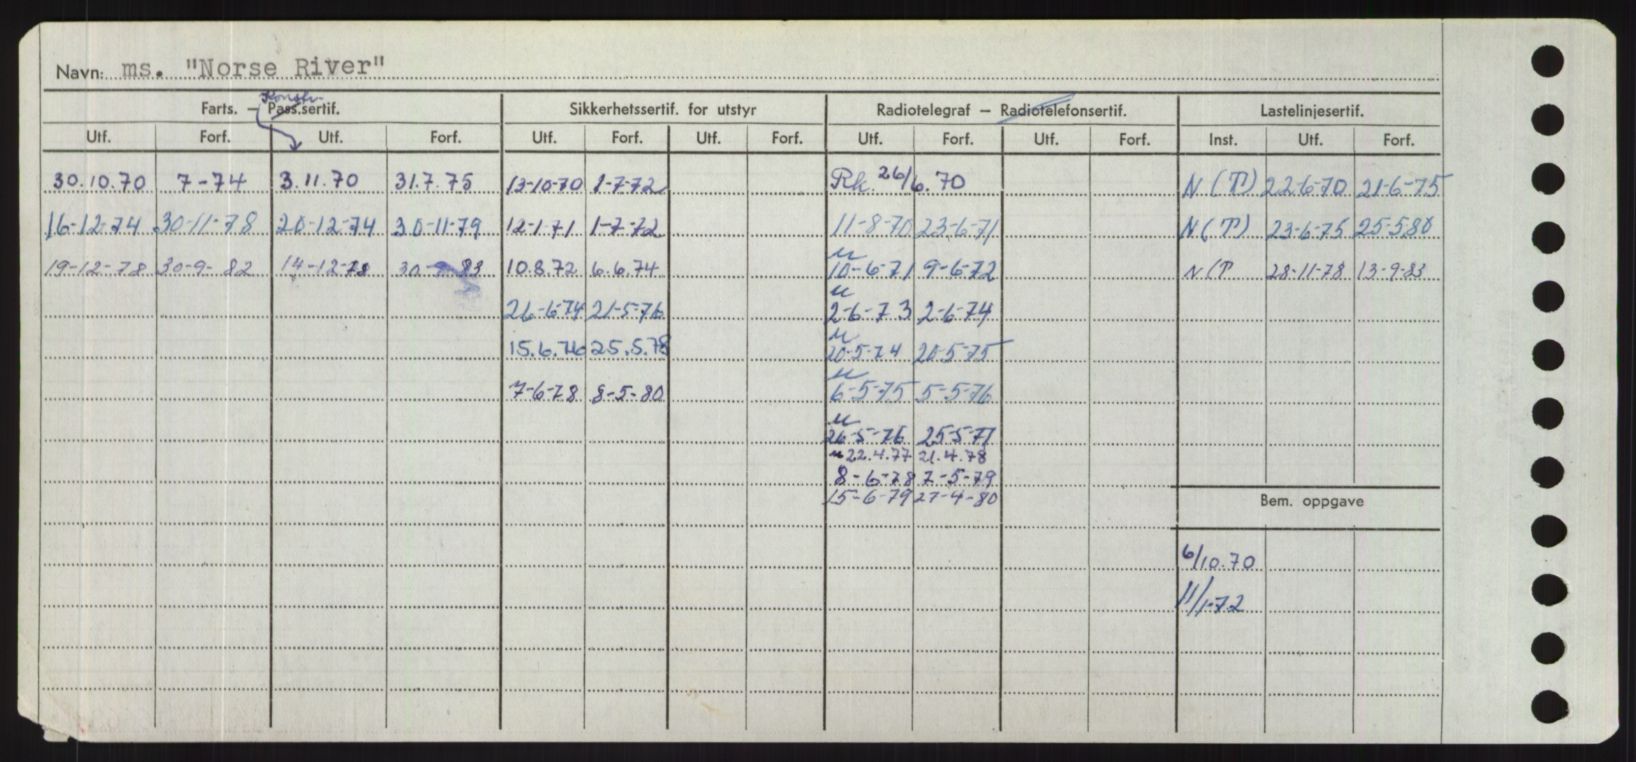 Navn: ms. "Norse River"
Konstr.
Farts. — Pass.sertif. Sikkerhetssertif. for utstyr Radiotelegraf — Radiotelefonsertif. Lastelinjesertif.
Utf. Forf. Utf. Forf. Utf. Forf. Utf. Forf. Utf. Forf. Utf. Forf. Inst. Utf. Forf.
30.10.70 7-74 3.11.70 31.7.75 13-10-70 1-7-72 Rk. 26/6.70 N(T) 22-6-70 21-6-75
16-12-74 30-11-78 20-12-74 30-11-79 12-1-71 1-7-72 11-8-70 23-6-71 N(T) 23-6-75 25-5 80
19-12-78 30-9-82 14-12-78 30-9-83 10.8.72 6.6.74 10-6-71 9-6-72 N(T 28-11-78 13-9-83
26-6-74 21-5-76 2-6-73 2-6-74
15.6.76 25.5.78 20-5-74 20-5-75
7-6-78 8-5-80 6-5-75 5-5-76
26-5-76 25-5-77
22.4.77 21.4.78
8-6-78 7-5-79
15-6-79 27-4-80
Bem. oppgave
6/10.70
11/1-72